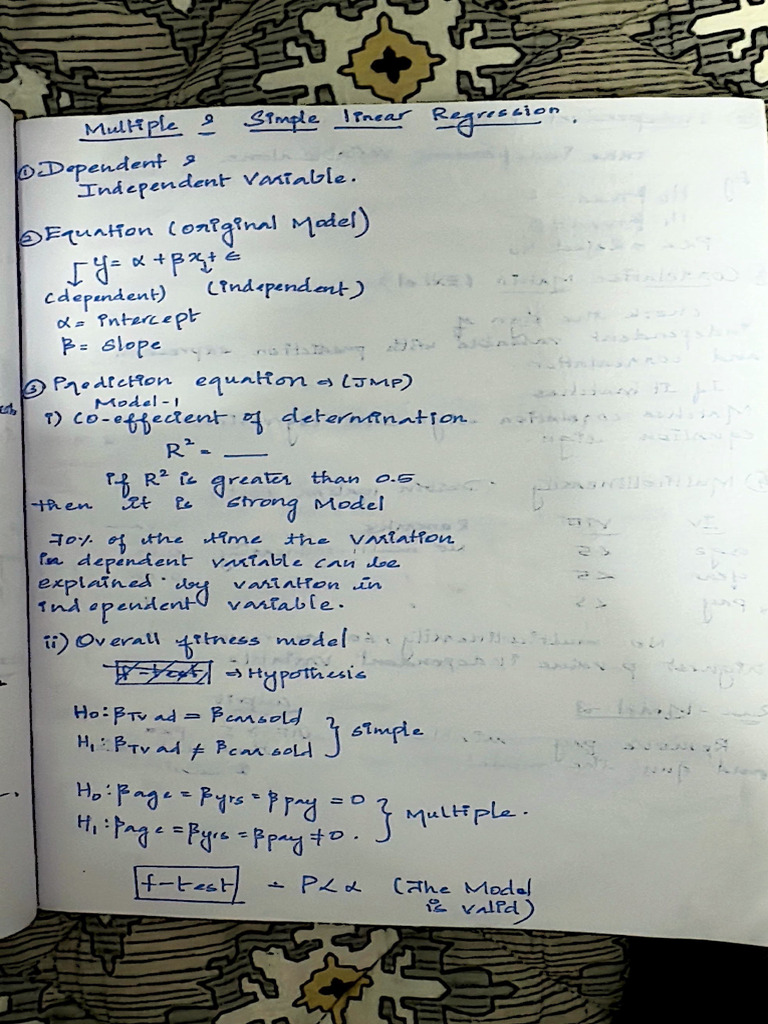 Multiple & Simple linear Regression.
① Dependent &
Independent Variable.
② Equation (original Model)
y = α + βx + ε
(dependent) (independent)
α = intercept
β = slope
③ Prediction equation ⇒ (JMP)
Model-1
i) co-effecient of determination
R² = __
if R² is greater than 0.5
then it is strong Model
70% of the time the variation
in dependent variable can be
explained by variation in
independent variable.
ii) Overall fitness model
⇒ Hypothesis
H₀: β TV ad = β car sold
H₁: β TV ad ≠ β car sold } simple
H₀: β age = β yrs = β pay = 0
H₁: β age = β yrs = β pay ≠ 0. } Multiple.
f-test - P < α (The Model
is valid)